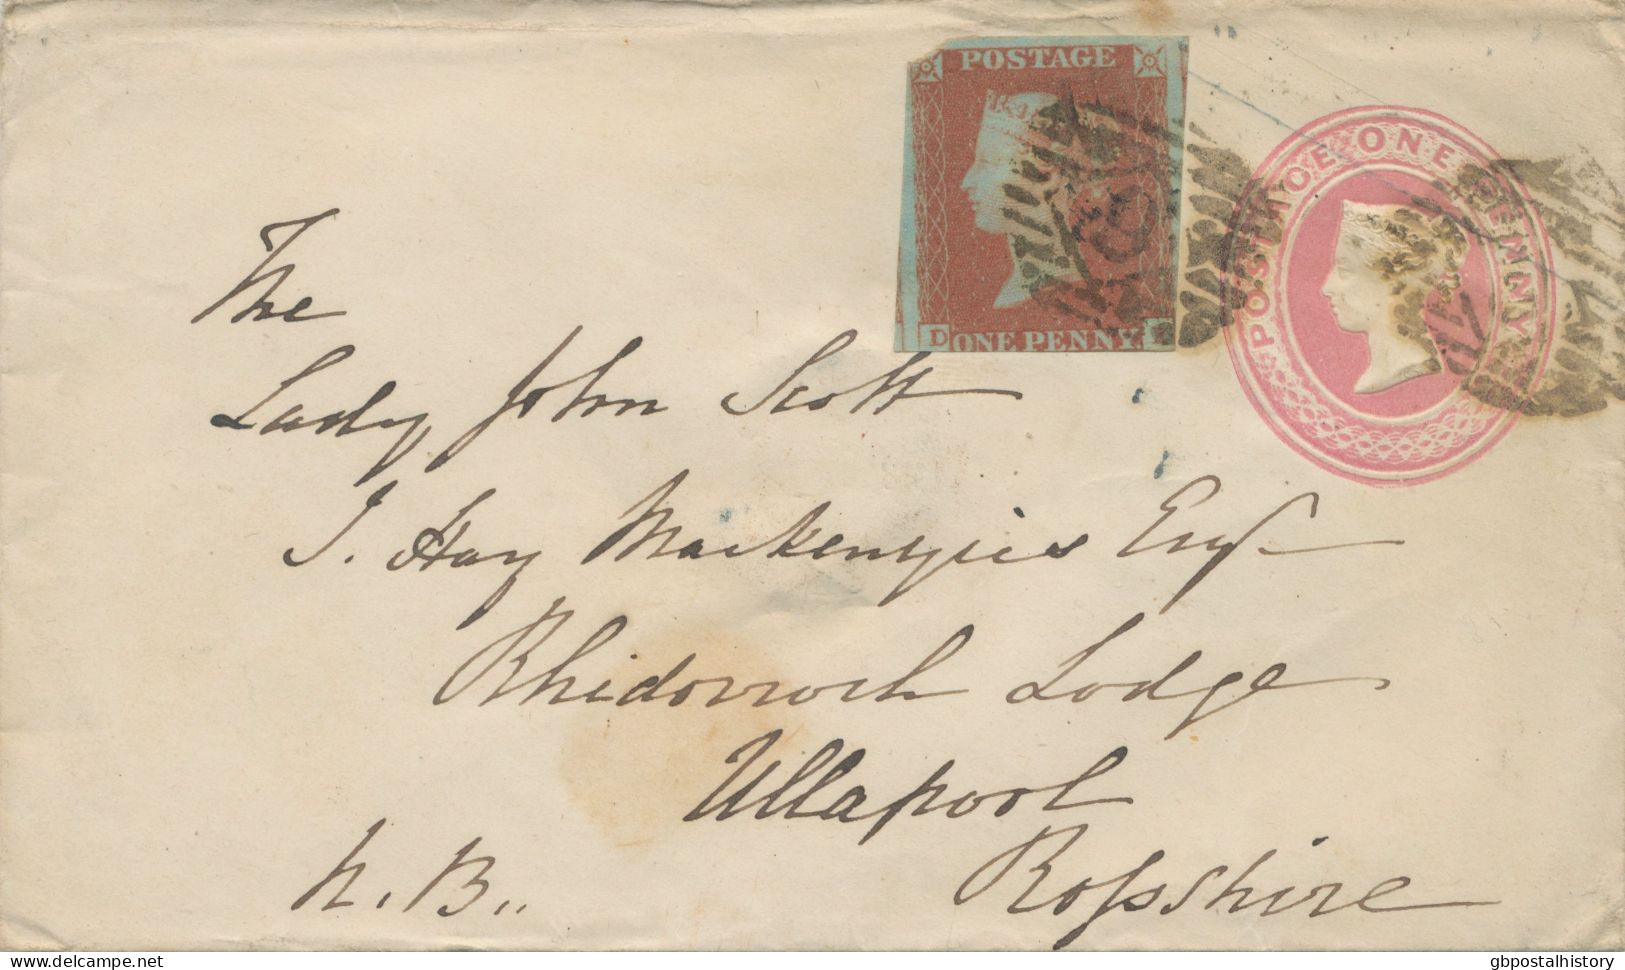 POSTAGE
D ONE PENNY
POSTAGE ONE PENNY
The
Lady John Scott
J. Hay Mackenzies Esqr
Rhidorroch Lodge
Ullapool
N.B.. Rossshire
www.delcampe.net
gbpostalhistory